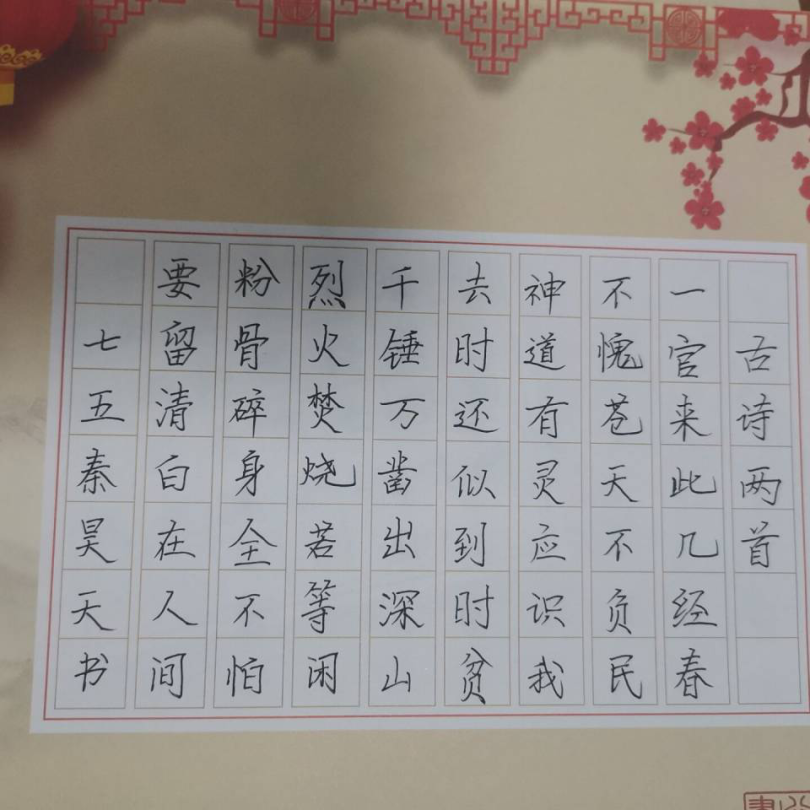 古诗两首
一官来此几经春
不愧苍天不负民
神道有灵应识我
去时还似到时贫
千锤万凿出深山
烈火焚烧若等闲
粉骨碎身全不怕
要留清白在人间
七五秦昊天书